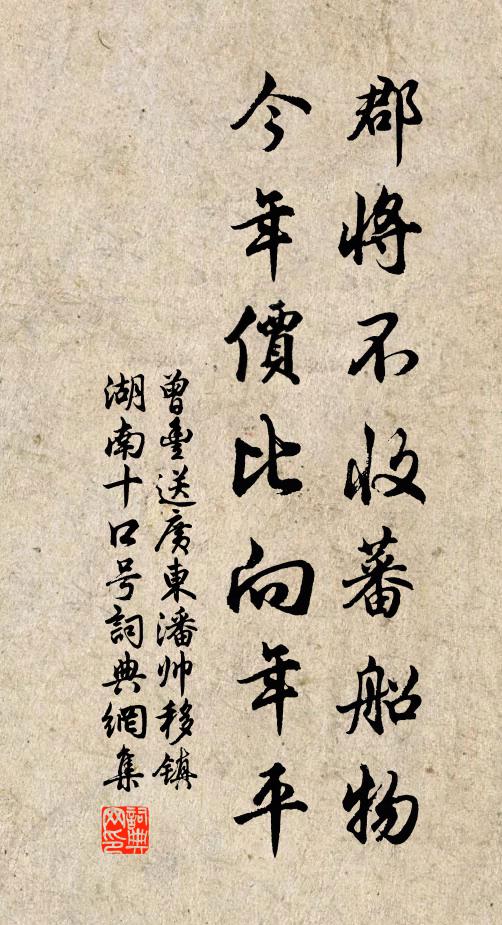 郡將不收蕃船物
今年價比向年平
曾豐送廣東潘帅移镇
湖南十口号詞典網集
詞典网印